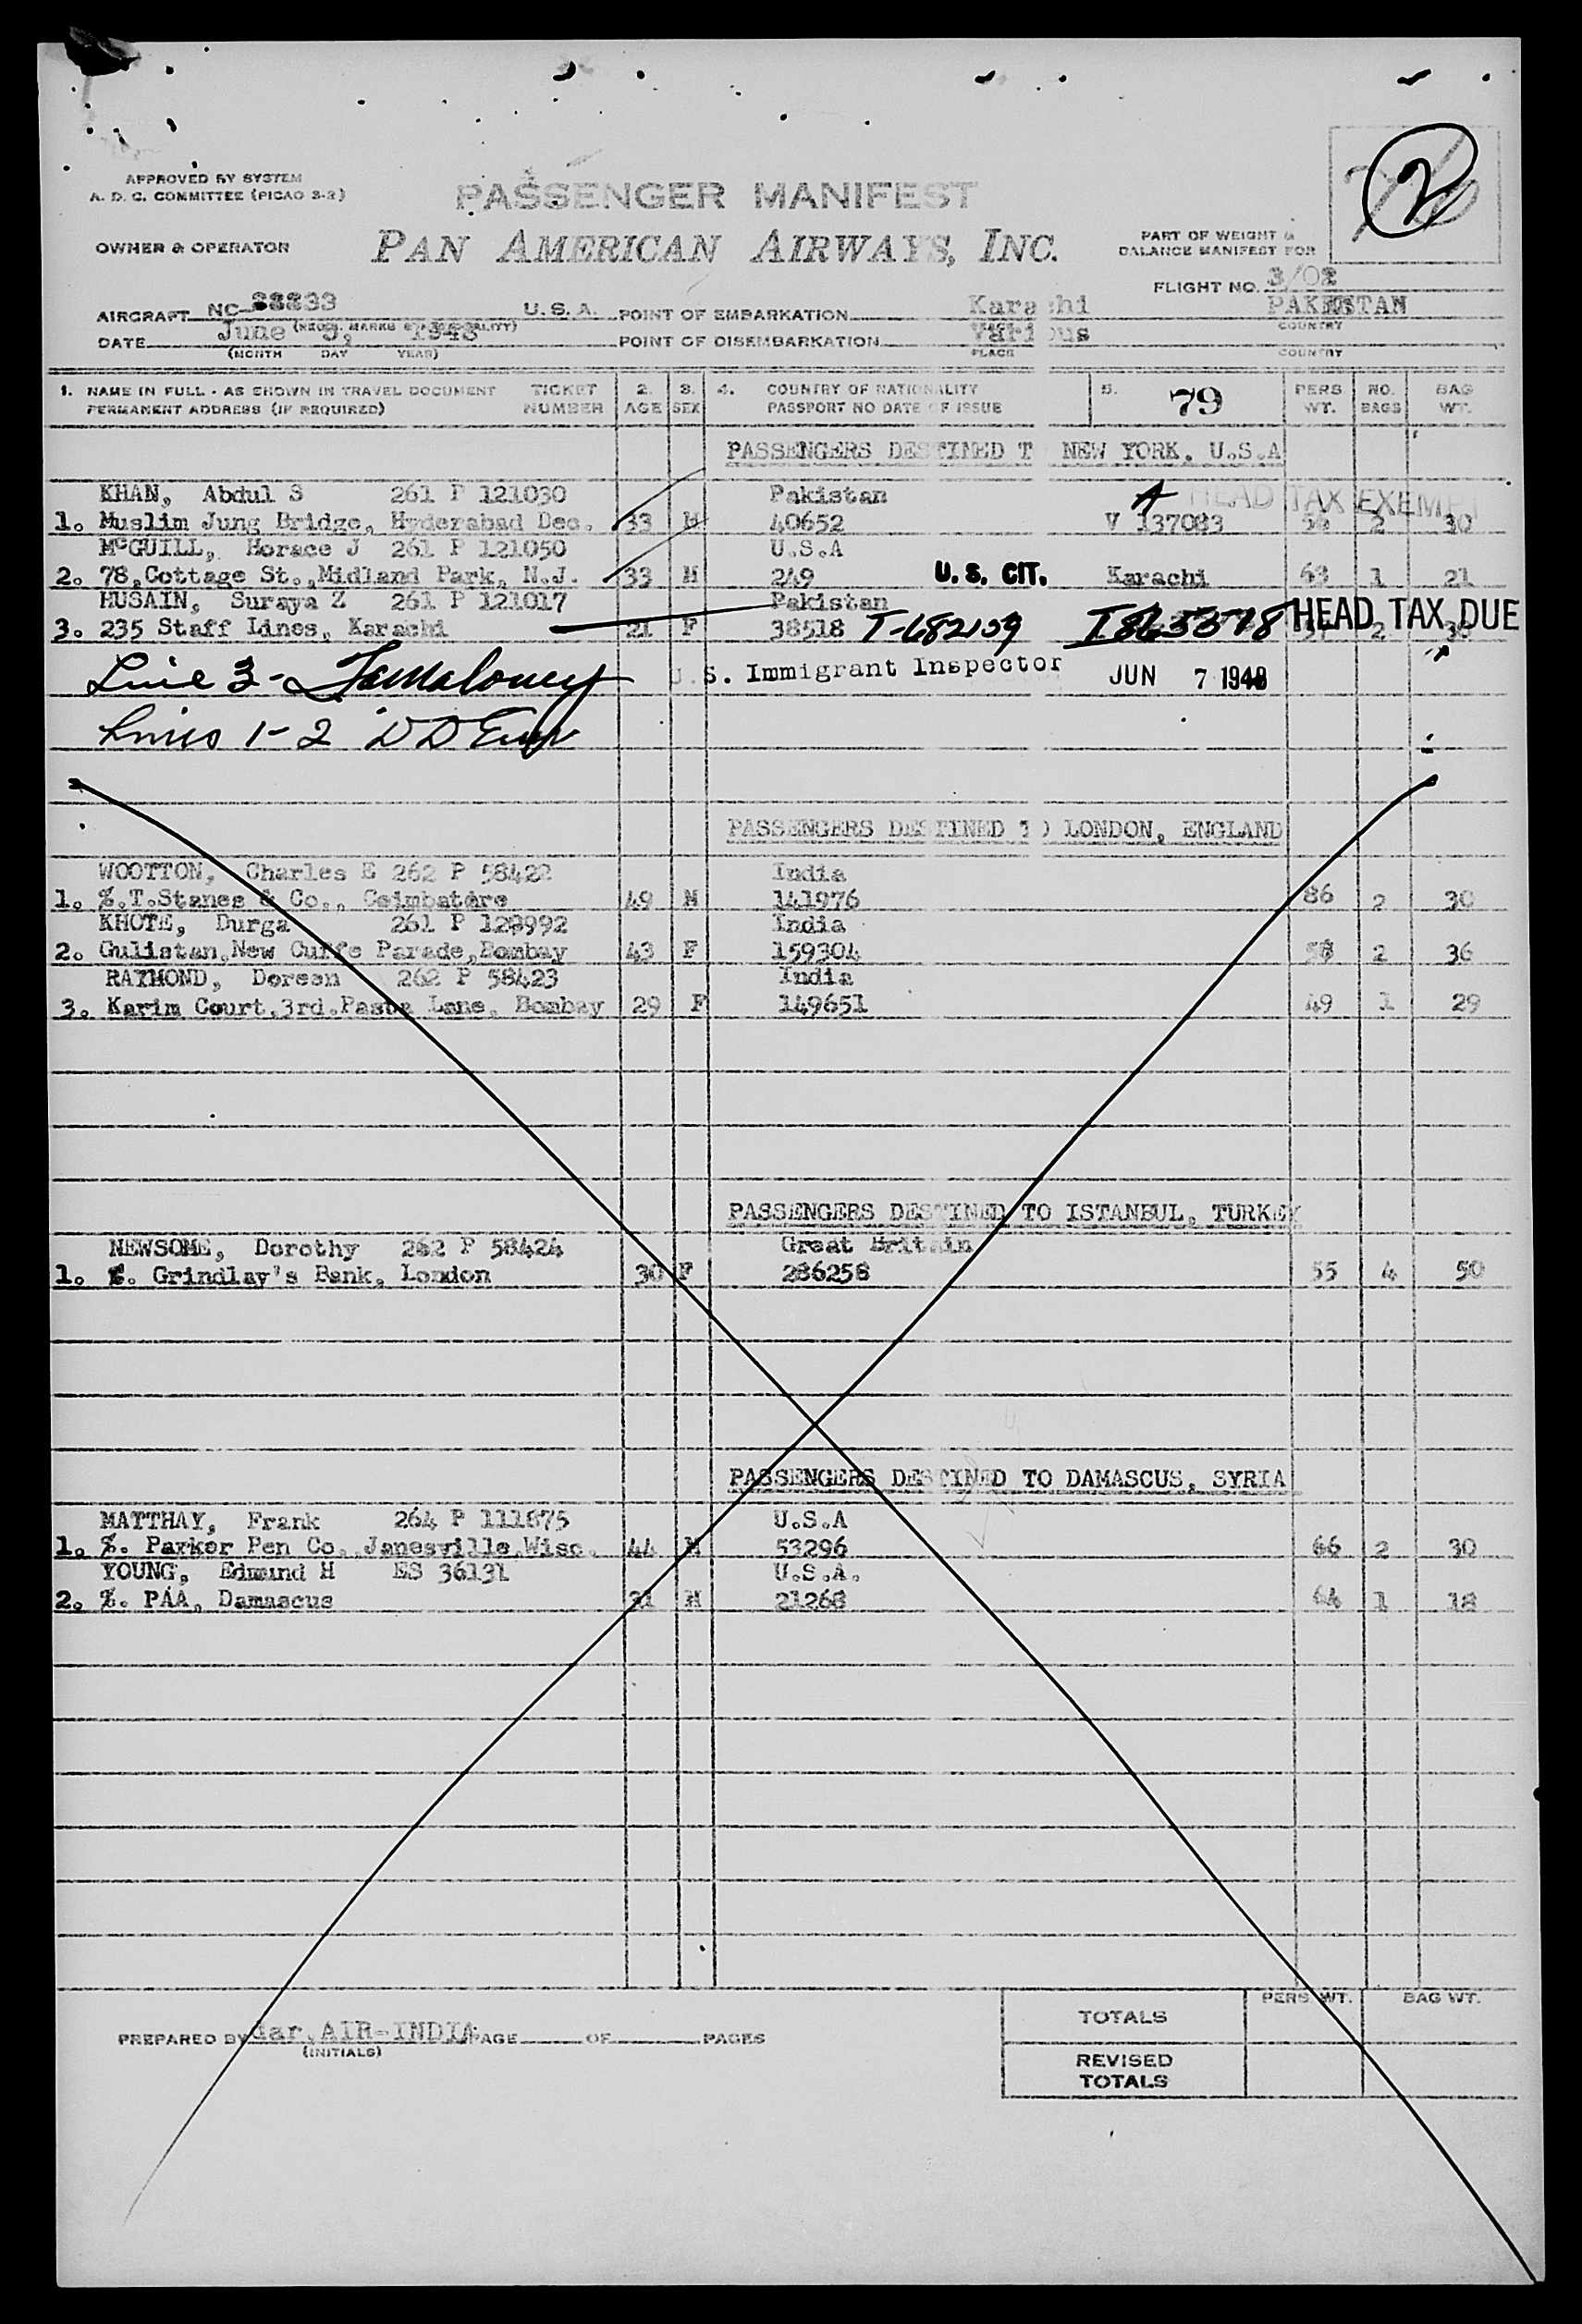 2
APPROVED BY SYSTEM
A. D. C. COMMITTEE (PICAO 3-2)
PASSENGER MANIFEST
OWNER & OPERATOR
PAN AMERICAN AIRWAYS, INC.
PART OF WEIGHT &
BALANCE MANIFEST FOR
FLIGHT NO. 3/02
AIRCRAFT NC- 88833 U. S. A. POINT OF EMBARKATION Karachi PAKISTAN
(REGIS. MARKS & NATIONALITY) PLACE COUNTRY
DATE June 5, 1948 POINT OF DISEMBARKATION Various
(MONTH DAY YEAR) PLACE COUNTRY
1. NAME IN FULL - AS SHOWN IN TRAVEL DOCUMENT TICKET 2. 3. 4. COUNTRY OF NATIONALITY 5. 79 PERS NO. BAG
PERMANENT ADDRESS (IF REQUIRED) NUMBER AGE SEX PASSPORT NO DATE OF ISSUE WT. BAGS WT.
PASSENGERS DESTINED TO NEW YORK, U.S.A
KHAN, Abdul S 261 P 121030 Pakistan A HEAD TAX EXEMPT
1. Muslim Jung Bridge, Hyderabad Dec. 33 M 40652 V 137083 2 30
McGUILL, Horace J 261 P 121050 U.S.A
2. 78,Cottage St.,Midland Park, N.J. 33 M 249 U. S. CIT. Karachi 63 1 21
HUSAIN, Suraya Z 261 P 121017 Pakistan
3. 235 Staff Lines, Karachi 21 F 38518 T-682159 HEAD TAX DUE 2 30
Line 3- U. S. Immigrant Inspector JUN 7 1948
Lines 1-2
PASSENGERS DESTINED TO LONDON, ENGLAND
WOOTTON, Charles E 262 P 58422 India
1. %.T.Stanes & Co., Coimbatore 49 M 141976 86 2 30
KHOTE, Durga 261 P India
2. Gulistan,New Cuffe Parade,Bombay 43 F 159304 58 2 36
RAYMOND, Doreen 262 P 58423 India
3. Karim Court,3rd.Pasta Lane, Bombay 29 F 149651 49 1 29
PASSENGERS DESTINED TO ISTANBUL, TURKEY
NEWSOME, Dorothy 262 P 58424 Great Britain
1. %. Grindlay's Bank, London 30 F 286258 55 4 50
PASSENGERS DESTINED TO DAMASCUS, SYRIA
MATTHAY, Frank 264 P 111875 U.S.A
1. %. Parker Pen Co. Janesville,Wisc. 44 M 53296 66 2 30
YOUNG, Edmund H ES 36131 U.S.A.
2. %. PAA, Damascus 31 M 21268 64 1 18
PERS. WT. BAG WT.
TOTALS
PREPARED BY dar.AIR-INDIA PAGE OF PAGES
(INITIALS)
REVISED
TOTALS